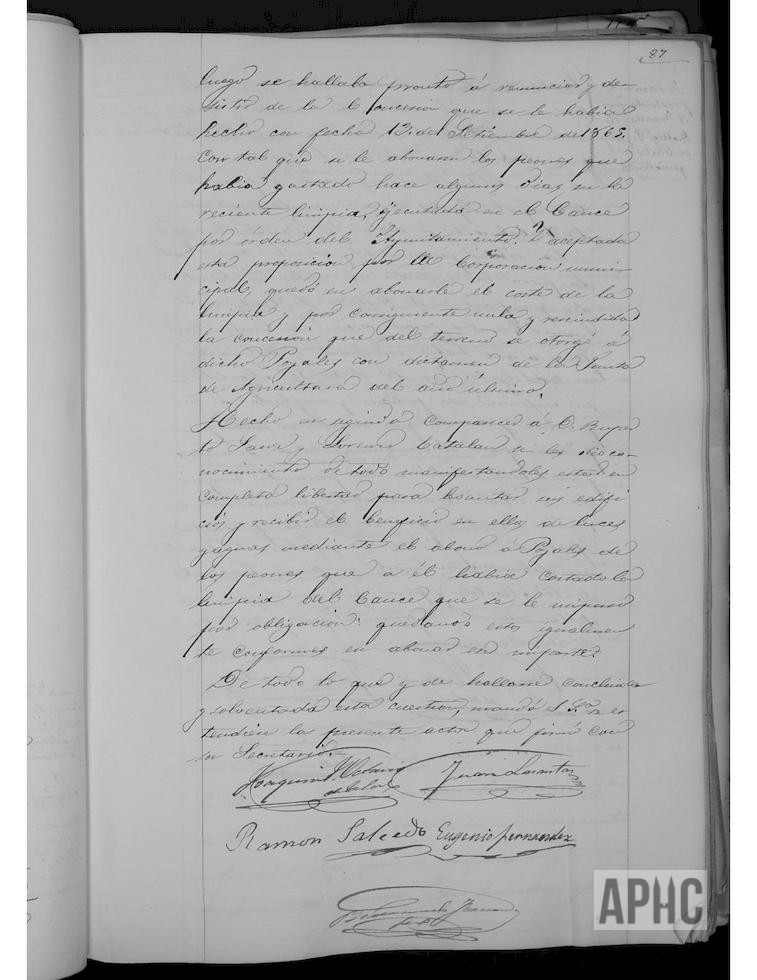 87
luego se hallaba pronto á renunciar y de-
sistir de la Concesion que se le habia
hecho con fecha 13. de Setiembre de 1865.
con tal que se le abonasen los peones que
habia gastado hace algunos dias en la
reciente limpia, ejecutada en el Cauce
por órden del Ayuntamiento. Y aceptada
esta proposicion por la Corporacion muni-
cipal, quedó en abonarle el coste de la
limpia y por consiguiente nula y rescindida
la concesion que del terreno se otorgó á
dicho Pojales con dictamen de la Junta
de Agricultura del año último.
Hecho en seguida comparecer á D. Ruper
to Sanz y Lorenzo Catalan se les dio co-
nocimiento de todo manifestandoles estar en
completa libertad para levantar sus edifi
cios y recibir el beneficio en ellos de luces
y aguas mediante el abono á Pojales de
los peones que á él habia costado la
limpia del Cauce que se le impuso
por obligacion: quedando estos igualmen
te conformes en abonar su importe.
De todo lo que y de hallarse concluida
y solventada esta cuestion, mandó S. Sª. se es
tendiera la presente acta que firmó con
su Secretario.
Joaquin
Juan
Ramon Salcedo Eugenio fernandez
APHC